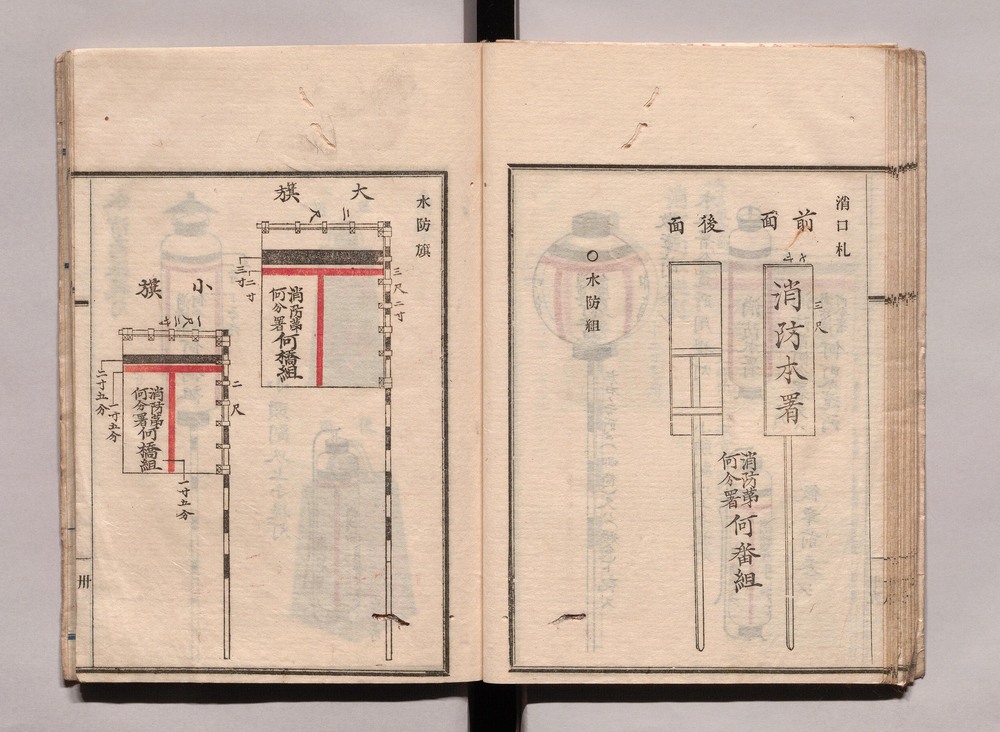 消口札
前面
七寸
三尺
消防本署
後面
消防第
何分署
何番組
○水防組
水防旗
大旗
二尺
三尺二寸
二寸
三寸
消防第
何分署
何橋組
小旗
一尺二寸
二尺
二寸五分
一寸五分
消防第
何分署
何橋組
一寸五分
卅